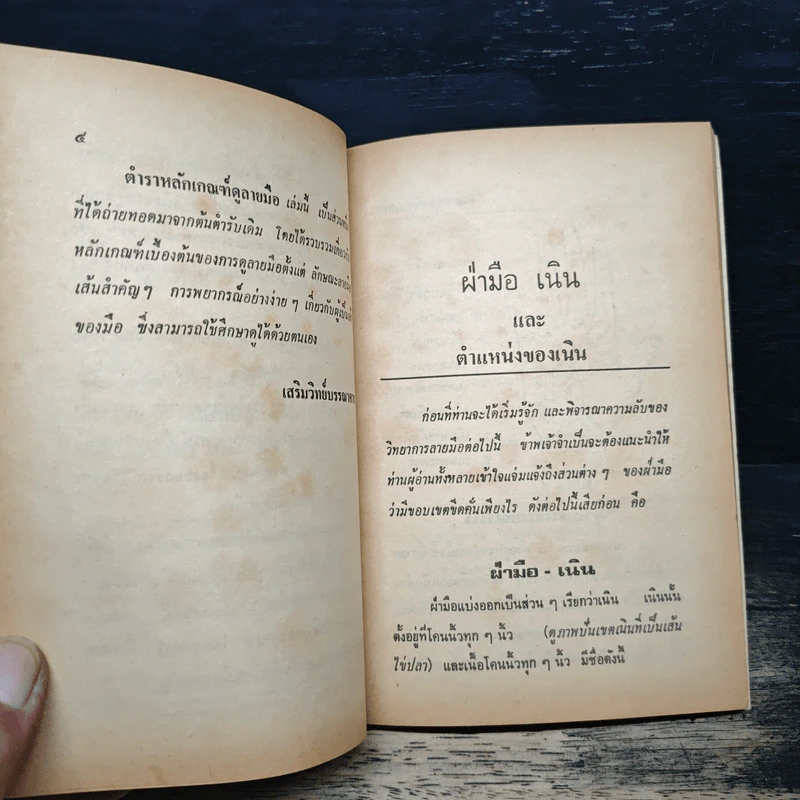 ๔
ตำราหลักเกณฑ์ดูลายมือ เล่มนี้ เป็นส่วนหนึ่ง
ที่ได้ถ่ายทอดมาจากต้นตำรับเดิม โดยได้รวบรวมเกี่ยวกับ
หลักเกณฑ์เบื้องต้นของการดูลายมือตั้งแต่ ลักษณะลายมือ
เส้นสำคัญๆ การพยากรณ์อย่างง่าย ๆ เกี่ยวกับผู้เป็นเจ้า
ของมือ ซึ่งสามารถใช้ศึกษาดูได้ด้วยตนเอง
เสริมวิทย์บรรณาคาร
ฝ่ามือ เนิน
และ
ตำแหน่งของเนิน
ก่อนที่ท่านจะได้เริ่มรู้จัก และพิจารณาความลับของ
วิทยาการลายมือต่อไปนี้ ข้าพเจ้าจำเป็นจะต้องแนะนำให้
ท่านผู้อ่านทั้งหลายเข้าใจแจ่มแจ้งถึงส่วนต่าง ๆ ของฝ่ามือ
ว่ามีขอบเขตขีดคั่นเพียงไร ดังต่อไปนี้เสียก่อน คือ
ฝ่ามือ - เนิน
ฝ่ามือแบ่งออกเป็นส่วน ๆ เรียกว่าเนิน เนินนั้น
ตั้งอยู่ที่โคนนิ้วทุก ๆ นิ้ว (ดูภาพปันเขตเนินที่เป็นเส้น
ไข่ปลา) และเนื้อโคนนิ้วทุก ๆ นิ้ว มีชื่อดังนี้